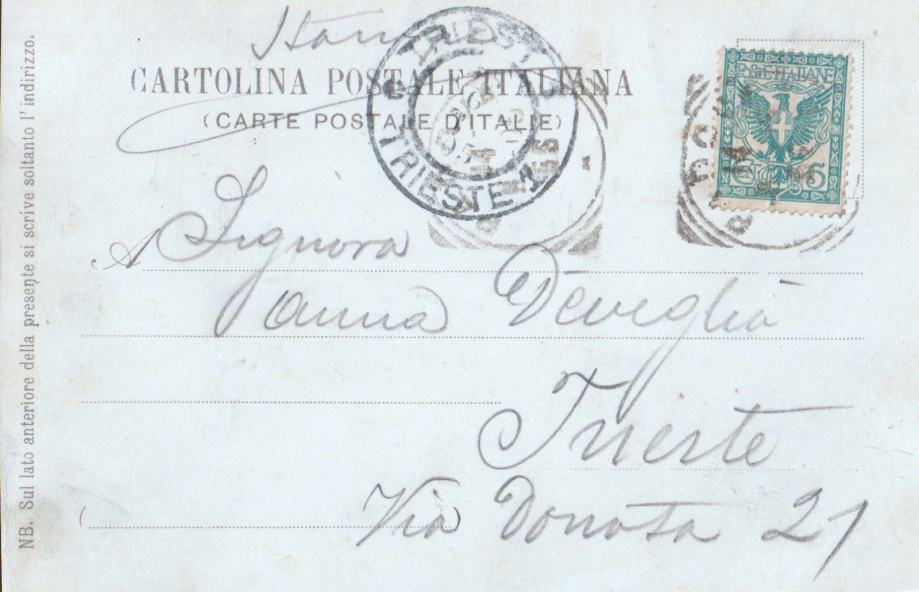 CARTOLINA POSTALE ITALIANA
(CARTE POSTALE D'ITALIE)
TRIEST
TRIESTE 1
5
A Signora
Anna Deveglià
Trieste
Via Donota 21
NB. Sul lato anteriore della presente si scrive soltanto l'indirizzo.